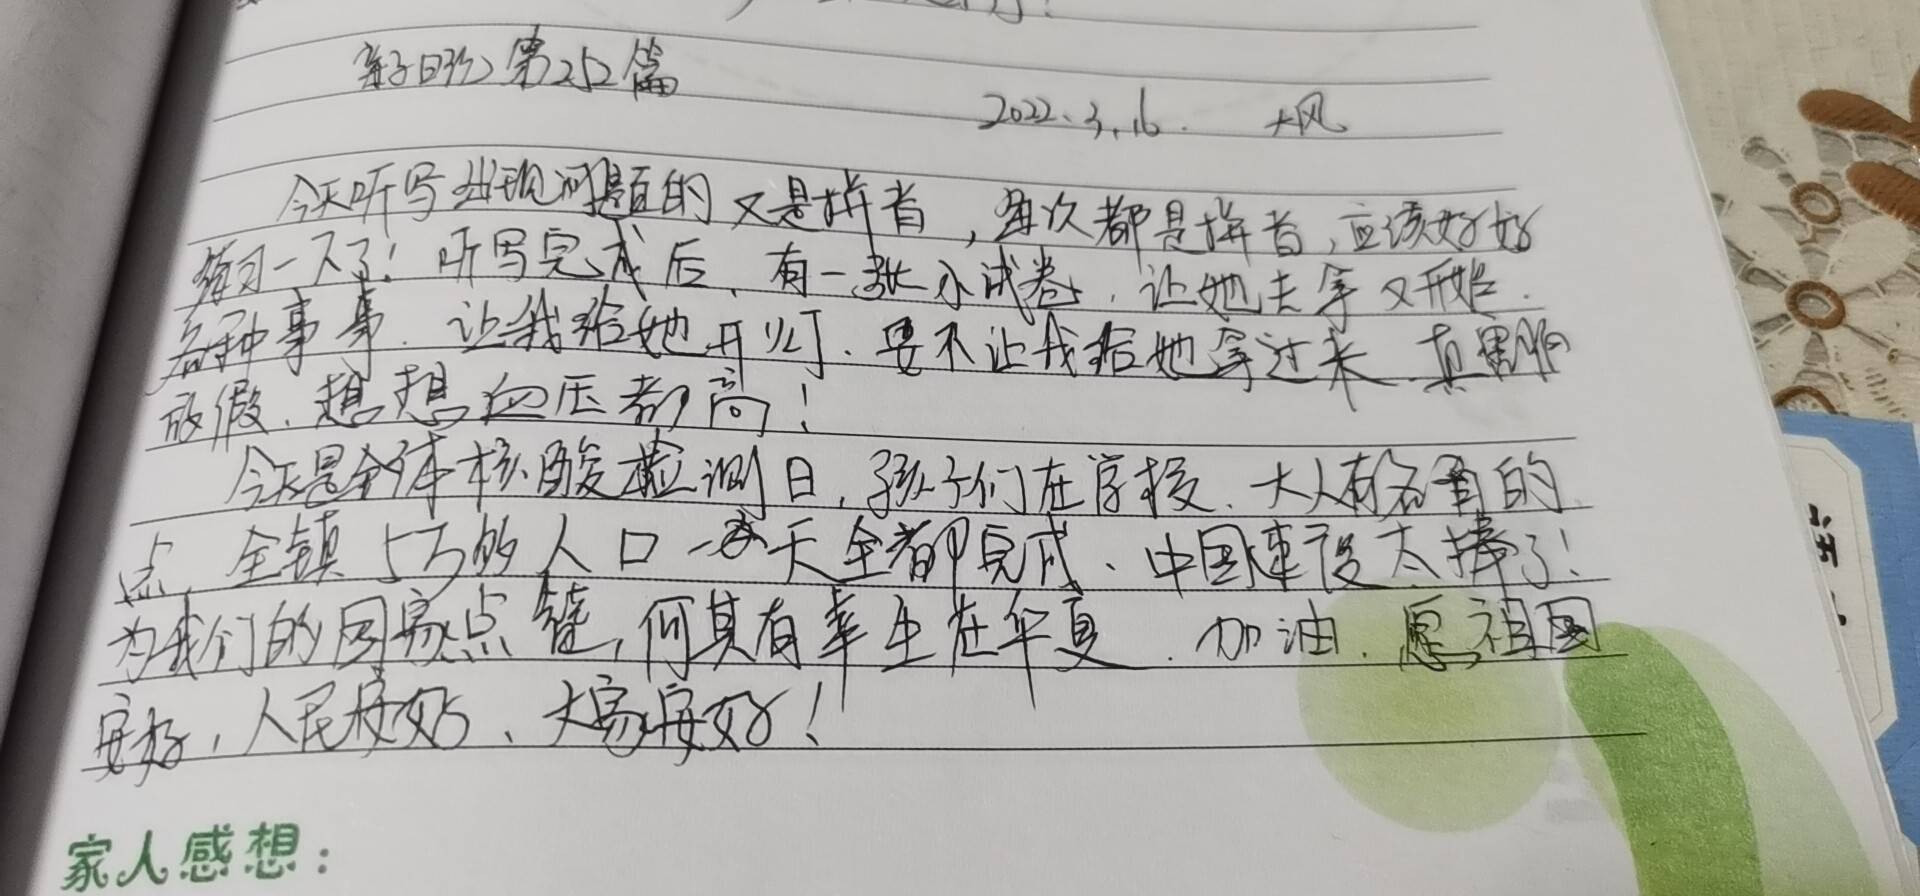 亲子日记第252篇
2022.3.16. 大风
今天听写出现问题的又是拼音,每次都是拼音,应该好好
练习一下了!听写完成后,有一张小试卷,让她去拿又开始.
各种事事.让我给她开灯.要不让我给她拿过来.真害怕
放假.想想血压都高!
今天是全体核酸检测日,孩子们在学校.大人有各自的
点.全镇5万的人口一天全都完成、中国速度太棒了!
为我们的国家点赞,何其有幸生在华夏.加油.愿祖国
安好,人民安好、大家安好!
家人感想: